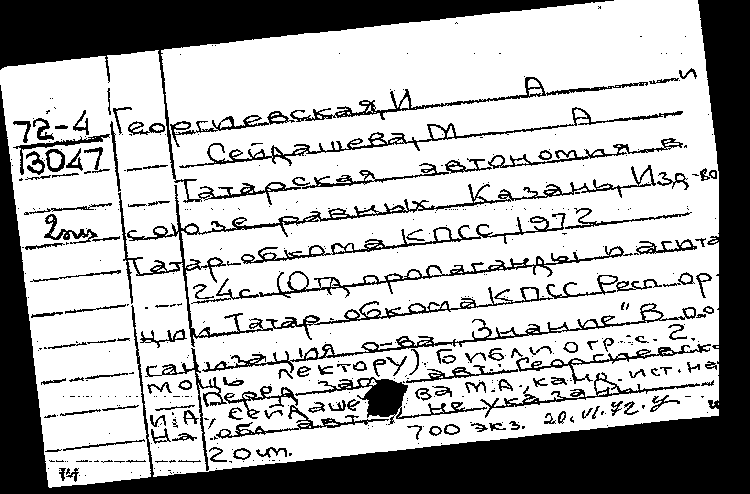 72-4
13047
2 экз
Георгиевская, И А и
Сейдашева, М А
Татарская автономия в
союзе равных. Казань, Изд-во
Татар. обкома КПСС, 1972.
24с. (Отд пропаганды и агита
ции Татар. обкома КПСС. Респ. ор-
ганизация о-ва "Знание" В по-
мощь лектору). Библиогр.: с. 2.
Перед заг авт.: Георгиевск
И.А., Сейдаше ва М.А., канд. ист. на
На обл авт не указаны.
700 экз. 20.VI.72.
20 см.